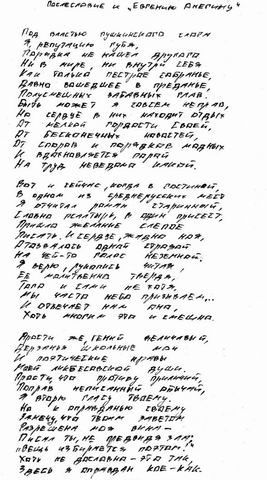 Послесловие к "Евгению Онегину"
Под властью пушкинского слога
Я, репутацию губя,
Порядка не нашел другого
Ни в мире, ни внутри себя
Как только пестрое собранье,
Давно вошедшее в преданье,
Полусмешных забавных глав,
Быть может я совсем неправ,
Но сердце в них находит отдых
От мелкой гордости своей,
От бесконечных новостей,
От споров и порядков модных
И вдохновляется порой
На труд неведомый иной.
Вот и сейчас, когда в гостиной,
В одном из среднерусских мест
Я прочитал роман старинный,
Словно псалтырь, в один присест,
Пришло желание слепое
Писать. И сердце, жадно ноя,
Отозвалось одной строфой
На чей-то голос неземной.
Я верю, рукопись читая,
Ее молитвенно твердя,
Того и сами не хотя,
Мы часто небо призываем,
И отвечает нам она,
Хоть многим эта и смешна.
Прости же, гений величавый,
Дерзанья школьные мои
И поэтические нравы
Моей плебейской души.
Прости, что противу приличий,
Поправ неписанный обычай,
Я вторю гласу твоему.
Но к оправданью своему
Замечу, что твоим заветом
Разрешена моя вина —
Писал ты, не предвидя зла:
"Вещь избирается поэтом."
Хоть не дословно - это так,
Здесь я оправдан кое-как.